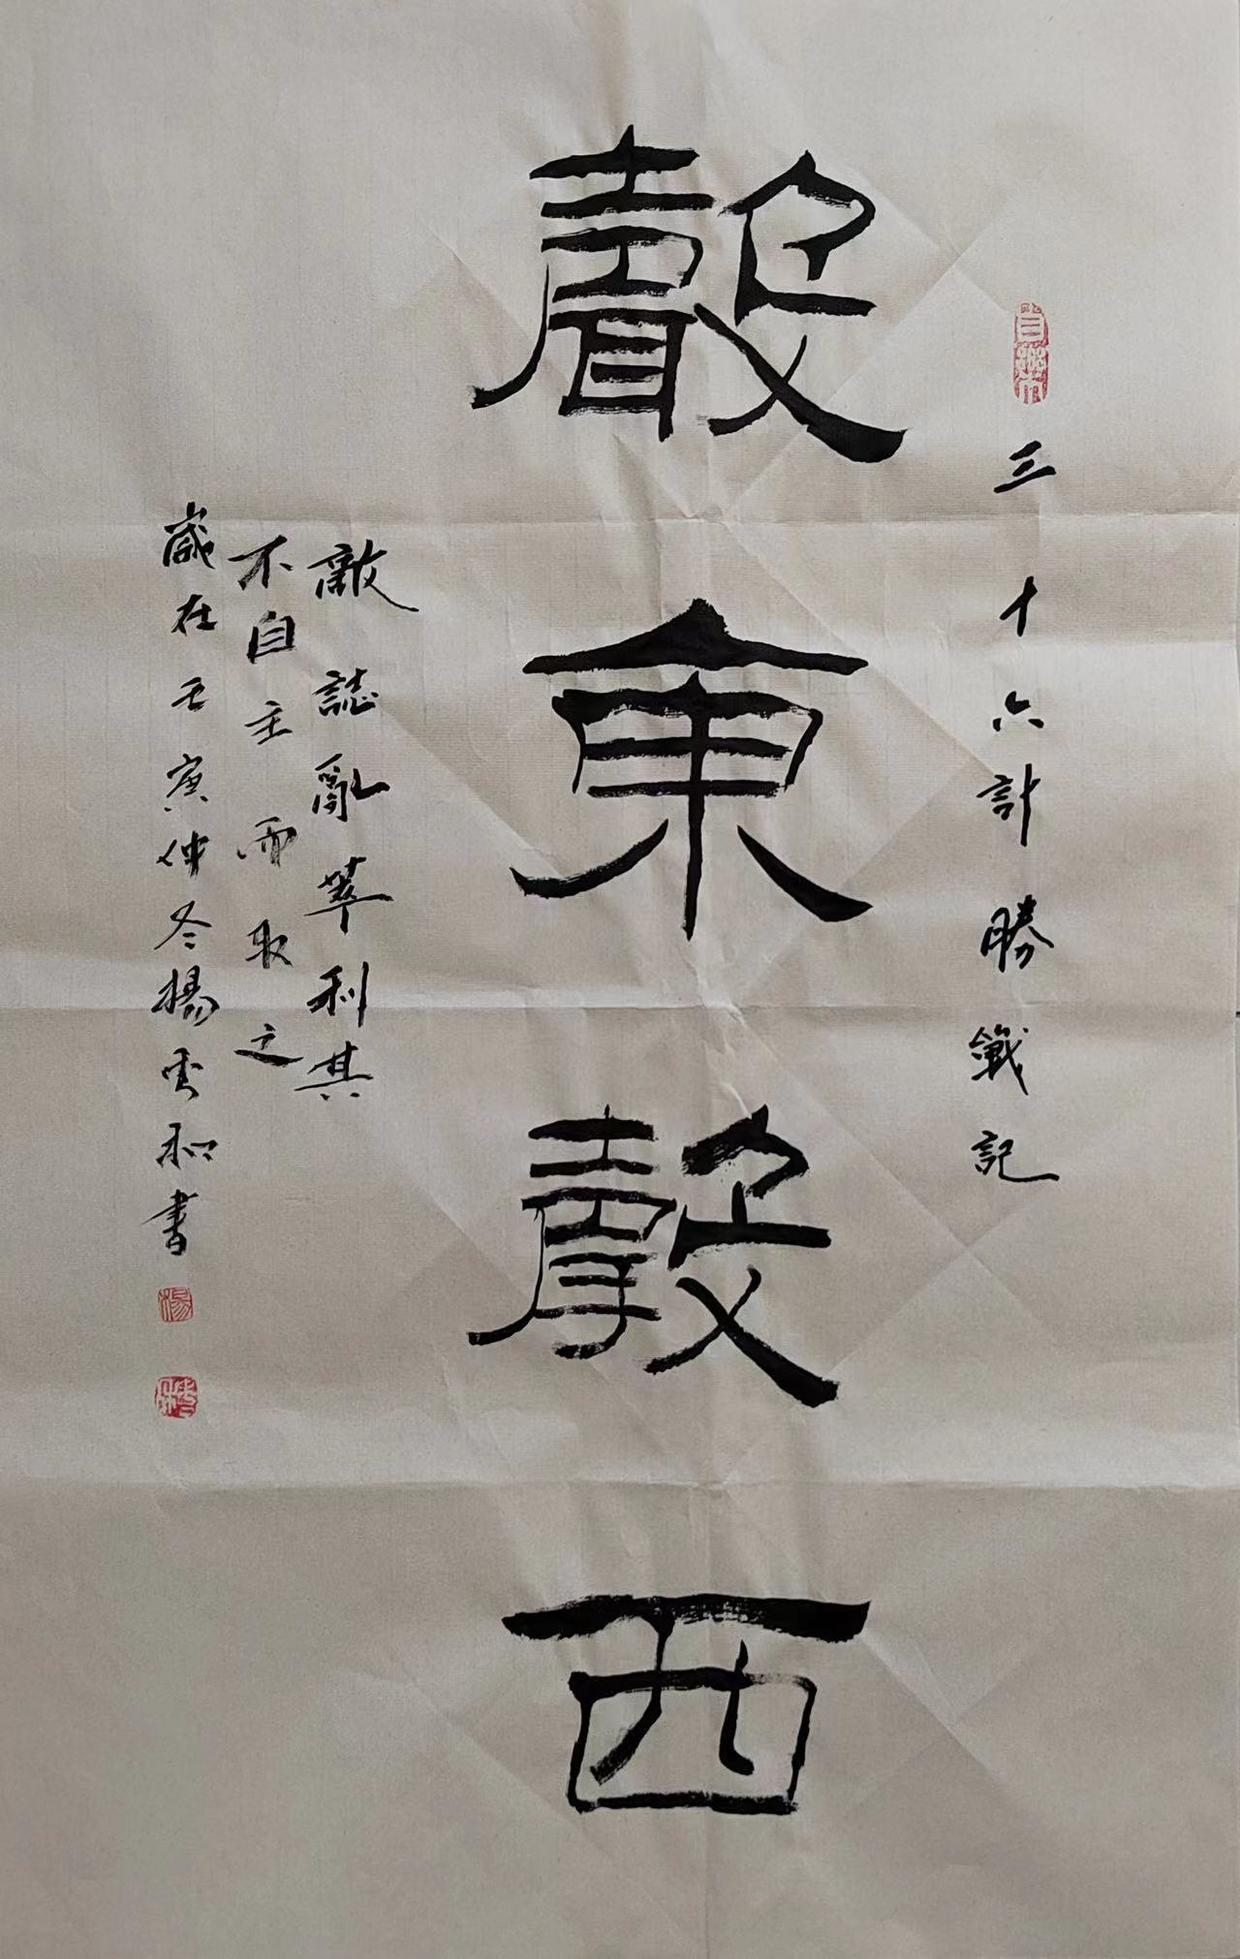 自樂
三十六計勝戰記
聲東擊西
敵誌亂萃利其
不自主而取之
歲在壬寅仲冬楊和書
楊